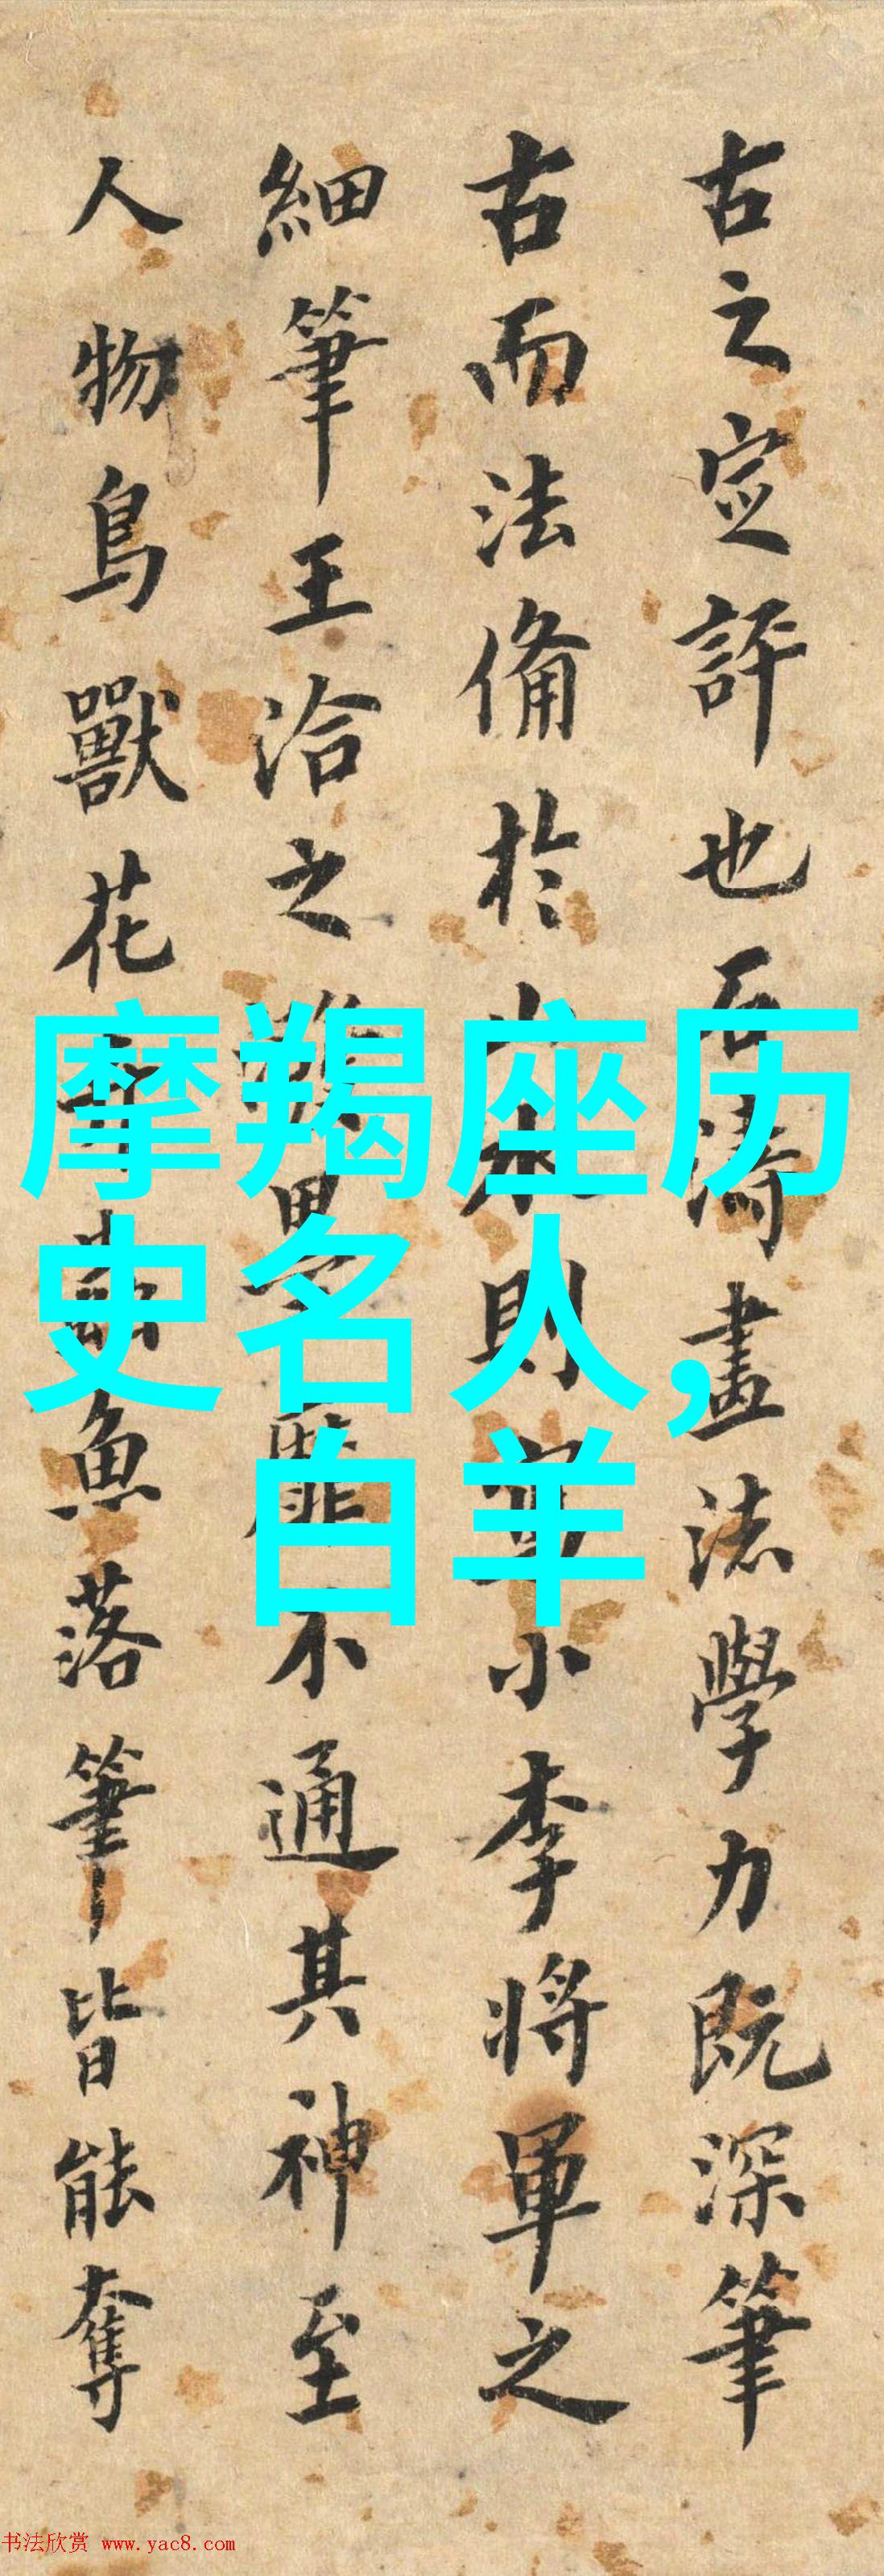 古之定評也石濤畫法學力既深筆
古而法備於山水則寫小李將軍之
細筆王洽之潑墨靡不通其神至
人物鳥獸花魚落筆皆能奪
摩羯座历
史名人,
白羊
书法欣赏 www.yac8.com